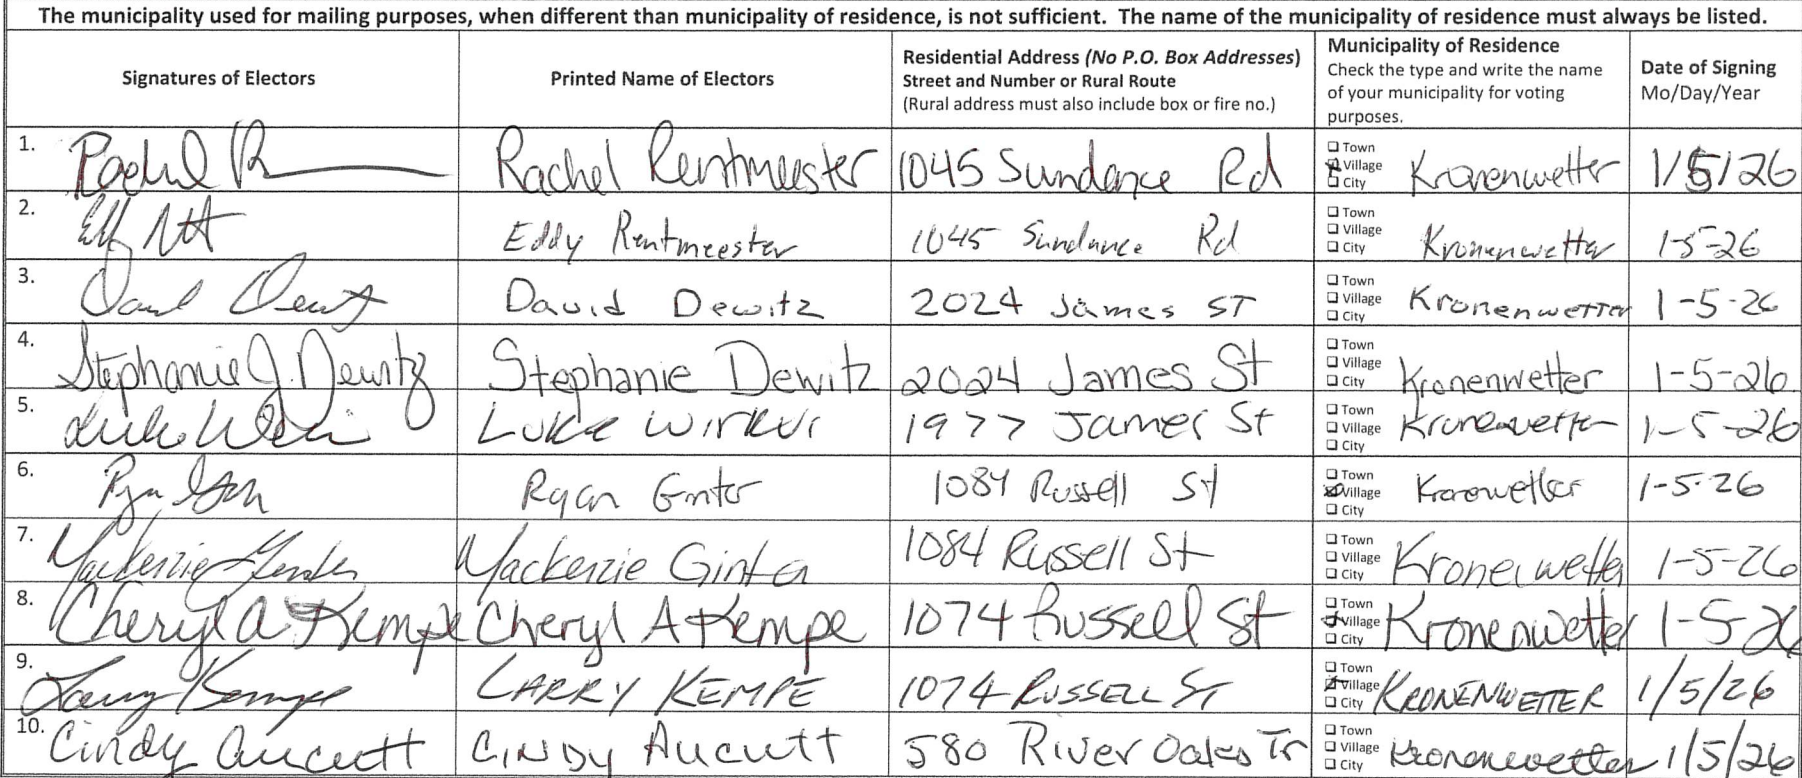 The municipality used for mailing purposes, when different than municipality of residence, is not sufficient. The name of the municipality of residence must always be listed.
Signatures of Electors
Printed Name of Electors
Residential Address (No P.O. Box Addresses)
Street and Number or Rural Route
(Rural address must also include box or fire no.)
Municipality of Residence
Check the type and write the name
of your municipality for voting
purposes.
Date of Signing
Mo/Day/Year
1. Rachel R Rachel Rentmeester 1045 Sundance Rd ☐ Town ☒ Village ☐ City Kronenwetter 1/5/26
2. Eddy Rentmeester 1045 Sundance Rd ☐ Town ☐ Village ☐ City Kronenwetter 1-5-26
3. David Dewitz David Dewitz 2024 James ST ☐ Town ☐ Village ☐ City Kronenwetter 1-5-26
4. Stephanie J. Dewitz Stephanie Dewitz 2024 James St ☐ Town ☐ Village ☐ City Kronenwetter 1-5-26
5. Luke Wirkus 1977 James St ☐ Town ☐ Village ☐ City Kronenwetter 1-5-26
6. Ryan Ginter 1084 Russell St ☐ Town ☒ Village ☐ City Kronenwetter 1-5-26
7. Mackenzie Ginter Mackenzie Ginter 1084 Russell St ☐ Town ☐ Village ☐ City Kronenwetter 1-5-26
8. Cheryl A Kempe Cheryl A Kempe 1074 Russell St ☐ Town ☒ Village ☐ City Kronenwetter 1-5-26
9. Larry Kempe LARRY KEMPE 1074 RUSSELL ST ☐ Town ☒ Village ☐ City KRONENWETTER 1/5/26
10. Cindy Aucutt CINDY Aucutt 580 River Oaks Tr ☐ Town ☐ Village ☐ City Kronenwetter 1/5/26